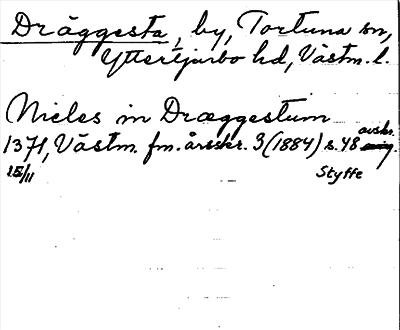 Dräggesta, by, Tortuna sn,
Yttertjurbo hd, Västm. l.
Nicles in Dræggestum
1371, Västm. fm. årsskr. 3 (1884) s. 48 avskr.
15/11 Styffe